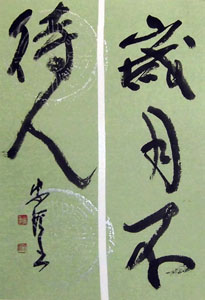 歳月不
待人